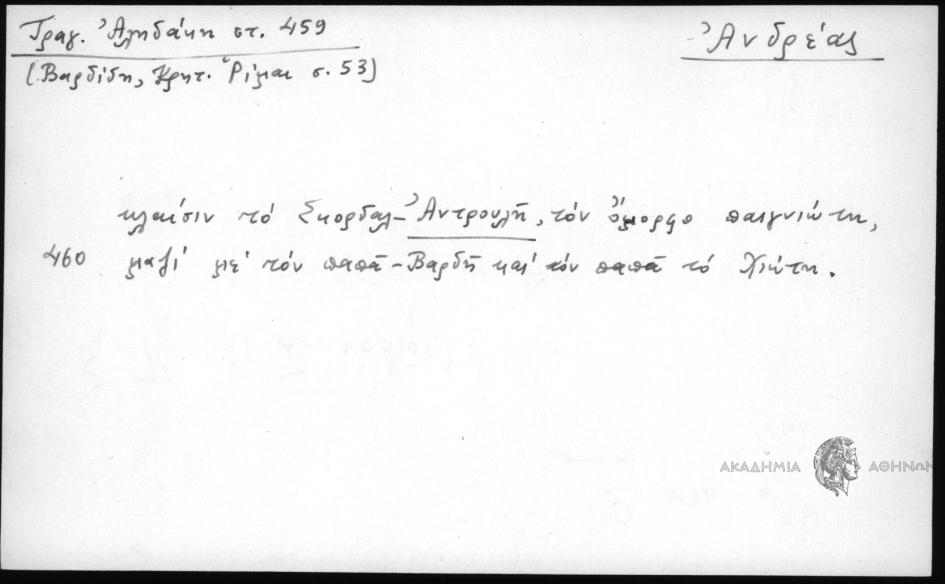 Τραγ. Ἀληδάκη στ. 459
Ἀνδρέας
(Βαρδίδη, Κρητ. Ῥίμαι σ. 53)
κλαίσιν τό Σκορδαλ-Ἀντρουλῆ, τόν ὄμορφο παιγνιώτη,
460 μαζί μέ τόν παπᾶ-Βαρδῆ καί τόν παπᾶ τό Χιώτη.
ΑΚΑΔΗΜΙΑ ΑΘΗΝΩΝ